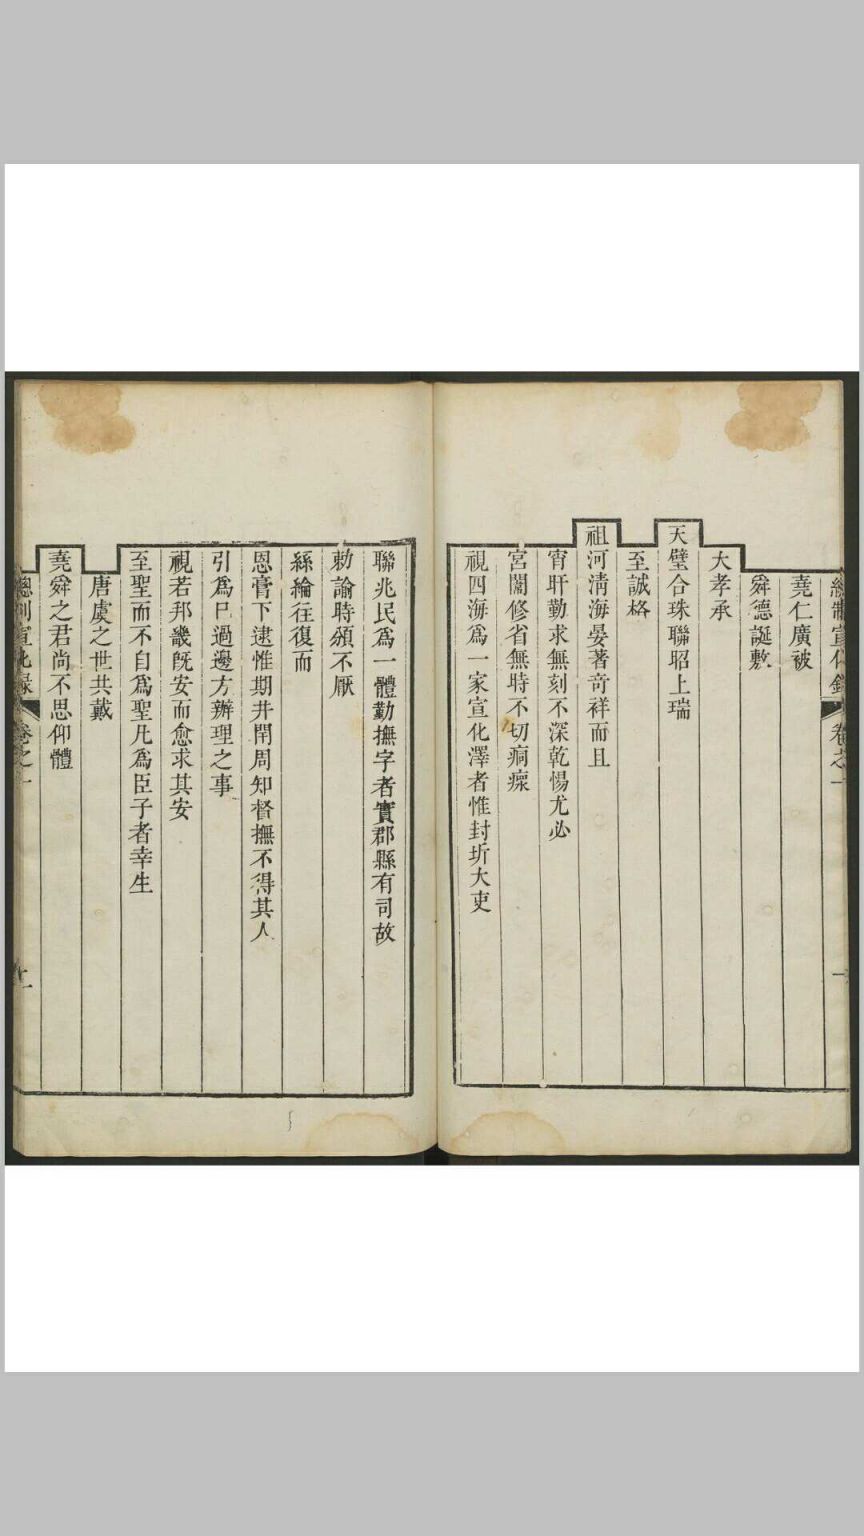 總制宣化錄 卷之一 一
堯仁廣被
舜德誕敷
大孝承
天璧合珠聯昭上瑞
至誠格
祖河清海晏著奇祥而且
宵旰勤求無刻不深乾惕尤必
宮闈修省無時不切痌瘝
視四海爲一家宣化澤者惟封圻大吏
聯兆民爲一體勤撫字者實郡縣有司故
勅諭時頒不厭
絲綸往復而
恩膏下逮惟期井閈周知督撫不得其人
引爲已過邊方辦理之事
視若邦畿旣安而愈求其安
至聖而不自爲聖凡爲臣子者幸生
唐虞之世共戴
堯舜之君尚不思仰體
總制宣化錄 卷之一